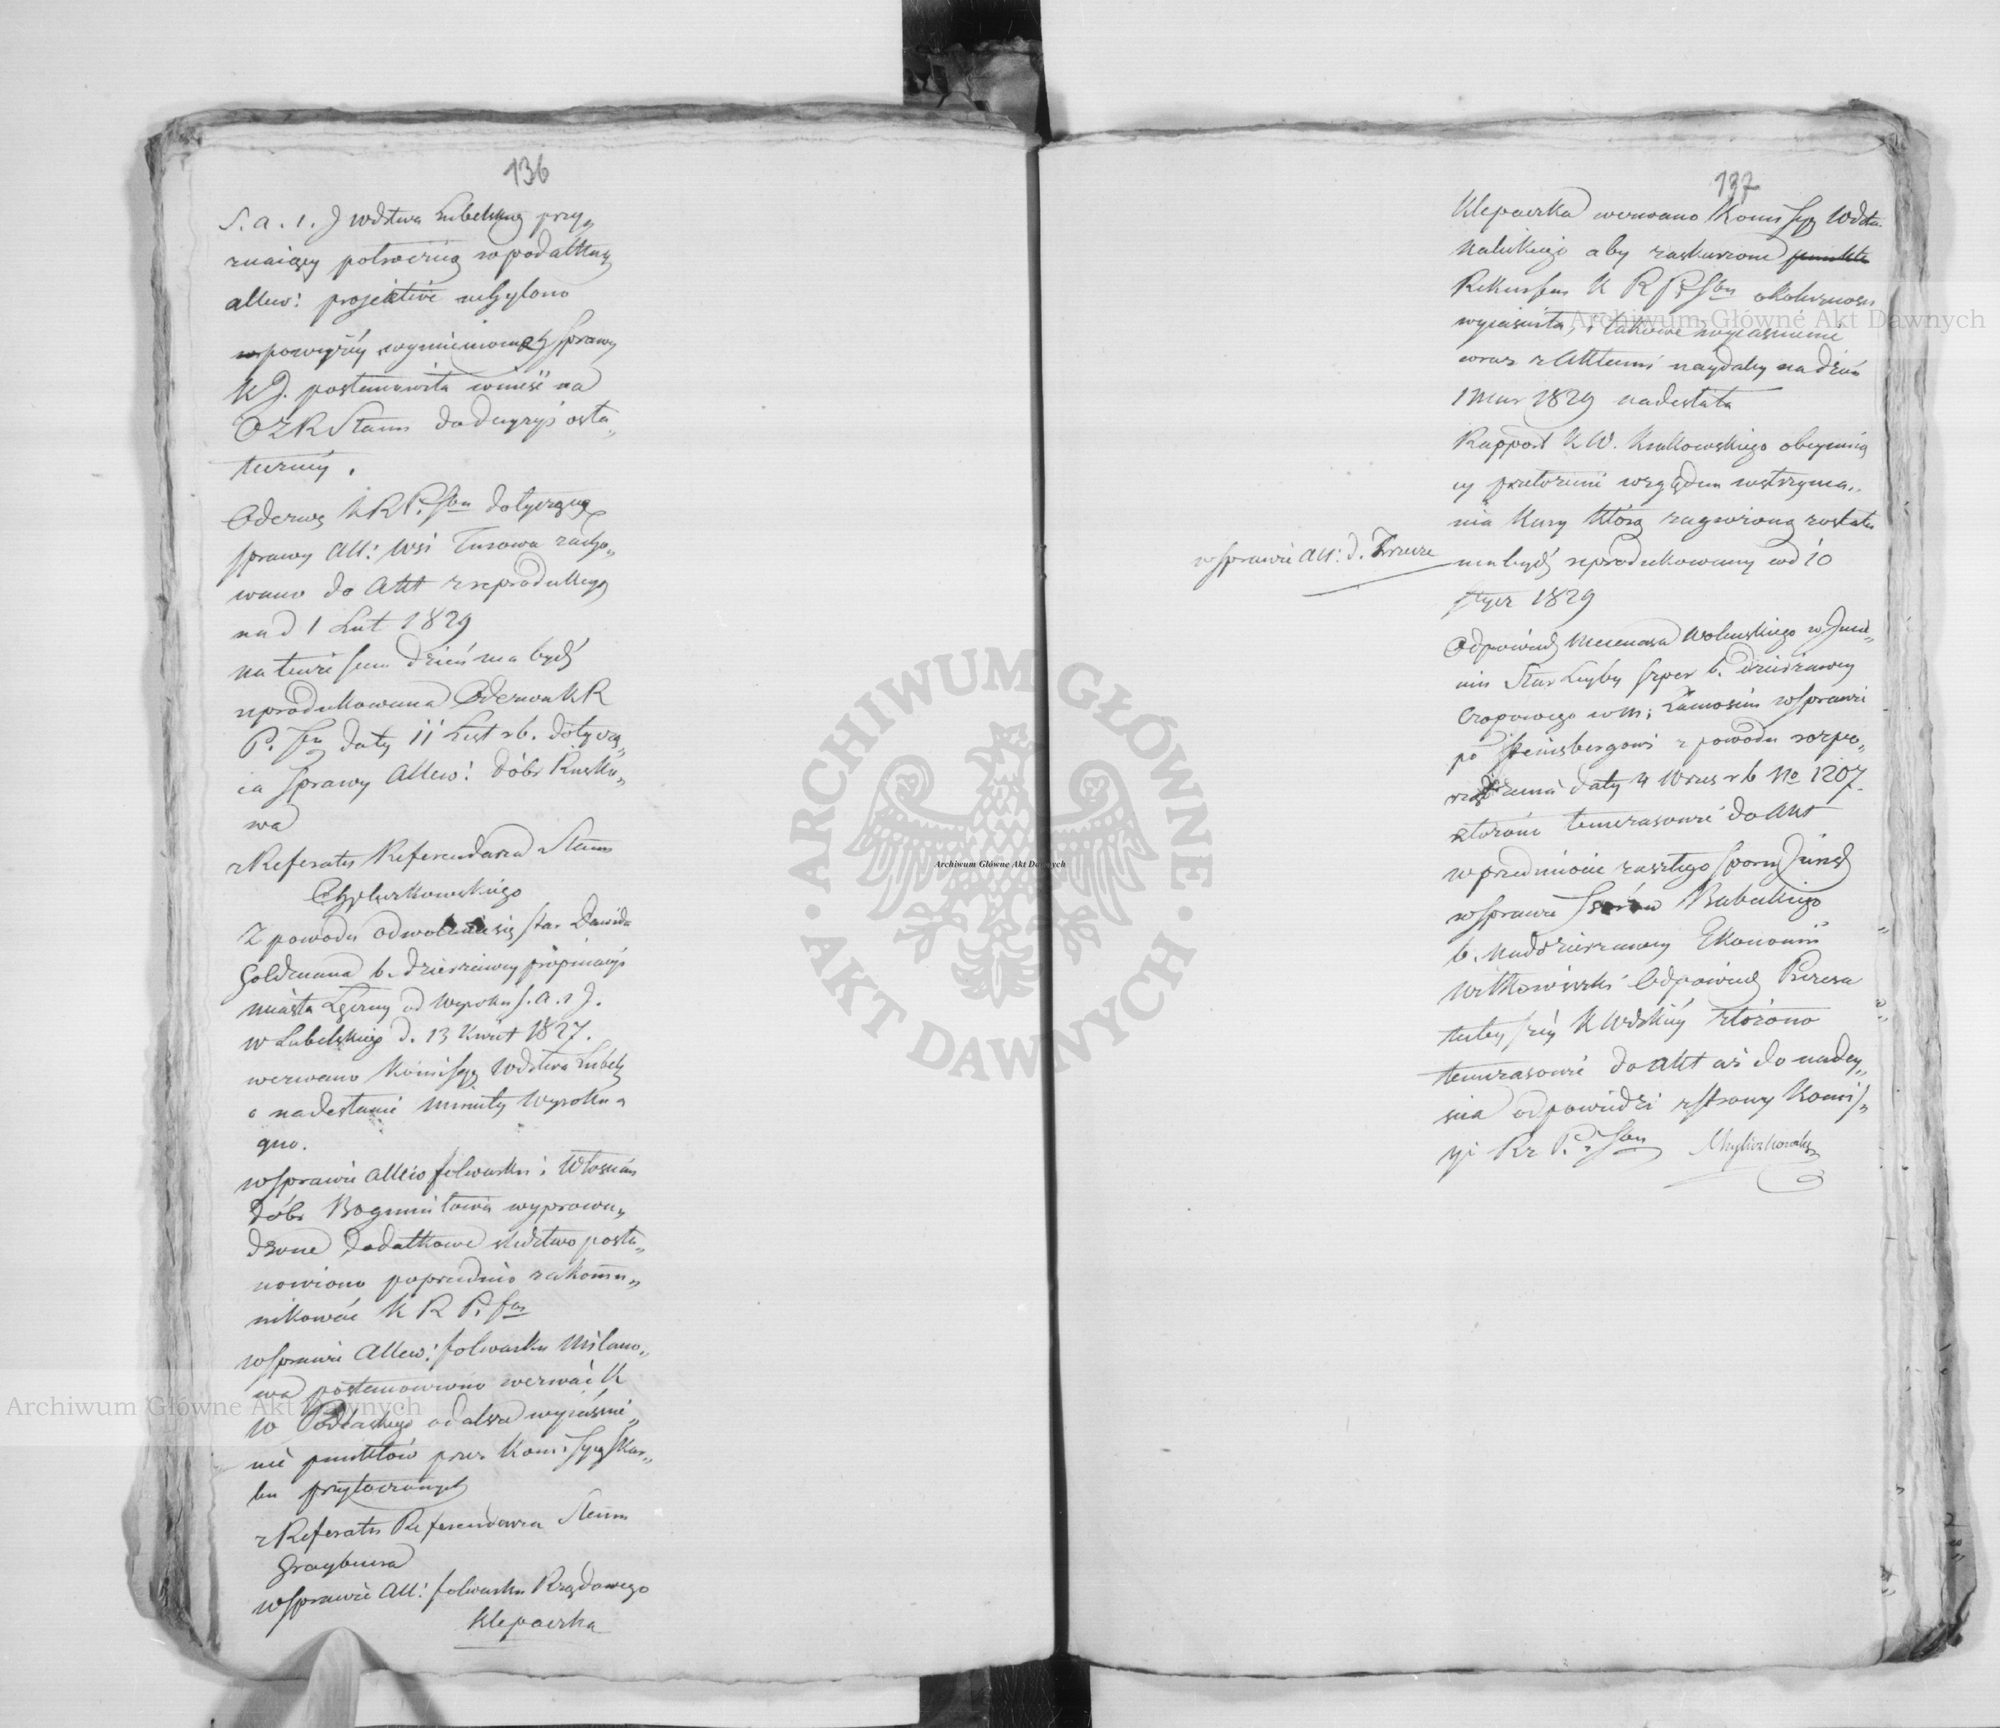 136
S. a. i. J wdztwa Lubelskieg przy„
znaiący połowiczną w podatkiey
allew: projektive uchylono
w powyższéy wymienioney Sprawy
KJ. postanowiła wnieść na
OZR Stanu do decyzyi osta„
teczney.
Odezwę K R P. i Sbu dotyczącą
sprawy All: Wsi Turowa zacho„
wano do Akt z reprodukcyą
na d 1 Lut 1829
na tenże sam dzień ma bydź
reprodukowana Odezwa K R
P. i Sbu daty 11 List r b. dotyczą„
ca Sprawy Allew: dóbr Rusko„
wa
z Referatu Referendarza Stanu
Chyliczkowskiego
Z powodu odwołania się Star Dawida
Goldmana b. dzierżawcy propinacyi
miasta Łęczny od Wyroku S. a. i J.
W Lubelskiego d. 13 Kwiet 1827.
wezwano Kommissyę Wdztwa Lubels
o nadesłanie Minuty Wyroku
gno.
w Sprawie Allew folwarku i Włościan
dóbr Bogumiłowa wyprowa„
dzone dodatkowe śledztwo posta„
nowiono poprzednio zakomu„
nikować K R P. i Sbu
w Sprawie Allew: folwarku Milano„
wa postanowiono wezwać K
W Podlaskiego o dalsze wyjaśnie„
nie punktów przez Kommissyę Skar„
bu przytoczonych
z Referatu Referendarza Stanu
Graybnera
w Sprawie All: folwarku Rządowego
Klepaczka
137
Klepaczka wezwano Komissyę Wdztwa
Kaliskiego aby zaskarżone punkta
Rekursem K R P i Sbu okoliczności
wyjaśniła, i takowe wyjaśnienie
wraz z Aktami naydaley na dzień
1 Mar 1829 nadesłała
Rapport K W. Krakowskiego obeymują
cy względem wstrzyma„
nia Kary którą zagrożoną została
w Sprawie All: d.
ma bydź reprodukowany na d 10
stycz 1829
Odpowiedź Mecenasa Wołowskiego w Imie„
niu Star Leyby b. dzierżawcy
Czopowego w M: Zamościu w Sprawie
po Steinsbergowi z powodu rozpo„
rządzenia daty 4 Wrześ r b No 1207.
złożono tymczasowie do Akt
w przedmiocie zaszłego sporu Jurisd
w Sprawie Izerów Babskiego
b. Naddzierżawcy Ekonomii
Witkowiczki Odpowiedź Prezesa
tutey szey K Wdzkiéy złożono
tymczasowie do Akt aż do nadey„
ścia odpowiedzi ze strony Komis„
syi Rz P. i Sbu Chyliczkowski
ARCHIWUM GŁÓWNE · AKT DAWNYCH ·
Archiwum Główne Akt Dawnych
Archiwum Główne Akt Dawnych
Archiwum Główne Akt Dawnych